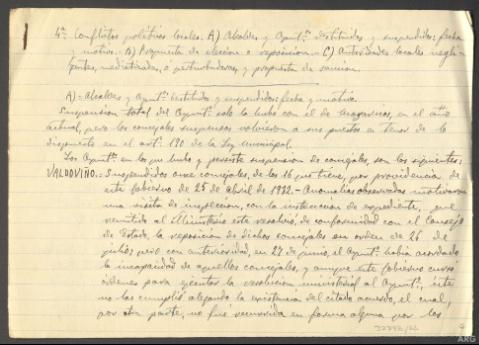 4º: Conflictos políticos locales. A) Alcaldes y Ayuntº destituidos y suspendidos: fecha
y motivo. - B) Propuesta de elección o reposición. - C) Autoridades locales negli-
gentes, mediatizadas, o perturbadoras, y propuesta de sanción.
A) - Alcaldes y Ayuntº destituidos y suspendidos: fecha y motivo.
Suspensión total del Ayuntº solo la hubo con el de en el año
actual, pero los concejales suspensos volvieron a sus puestos en tenor de lo
dispuesto en el artº 190 de la Ley municipal.
Los Ayuntº en los que hubo y persiste suspensión de concejales son los siguientes:
VALDOVIÑO.: Suspendidos once concejales, de los 16 que tiene, por providencia de
este gobierno de 25 de abril de 1932 - Anomalías observadas motivaron
una visita de inspección, con la instrucción de expediente, que
remitido al Ministerio este resolvió, de conformidad con el Consejo
de Estado, la reposición de dichos concejales en orden de 26 de
julio; pero con anterioridad, en 27 de junio, el Ayuntº había acordado
la incapacidad de aquellos concejales, y aunque este gobierno cursó
órdenes para ejecutar la resolución ministerial al Ayuntº, éste
no las cumplió alegando la existencia del citado acuerdo, el cual,
por otra parte, no fue recurrido en forma alguna por los
ARG